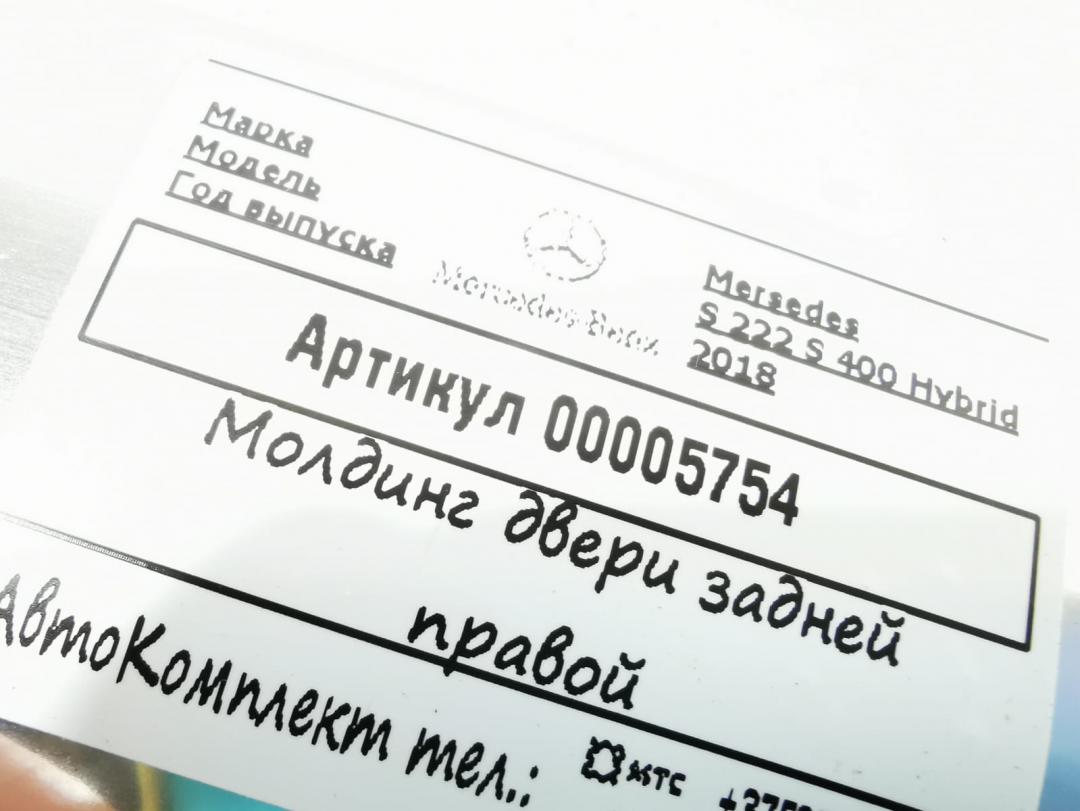 Марка
Модель
Год выпуска
Mercedes-Benz
Mersedes
S 222 S 400 Hybrid
2018
Артикул 00005754
Молдинг двери задней
правой
АвтоКомплект тел.:
мтс